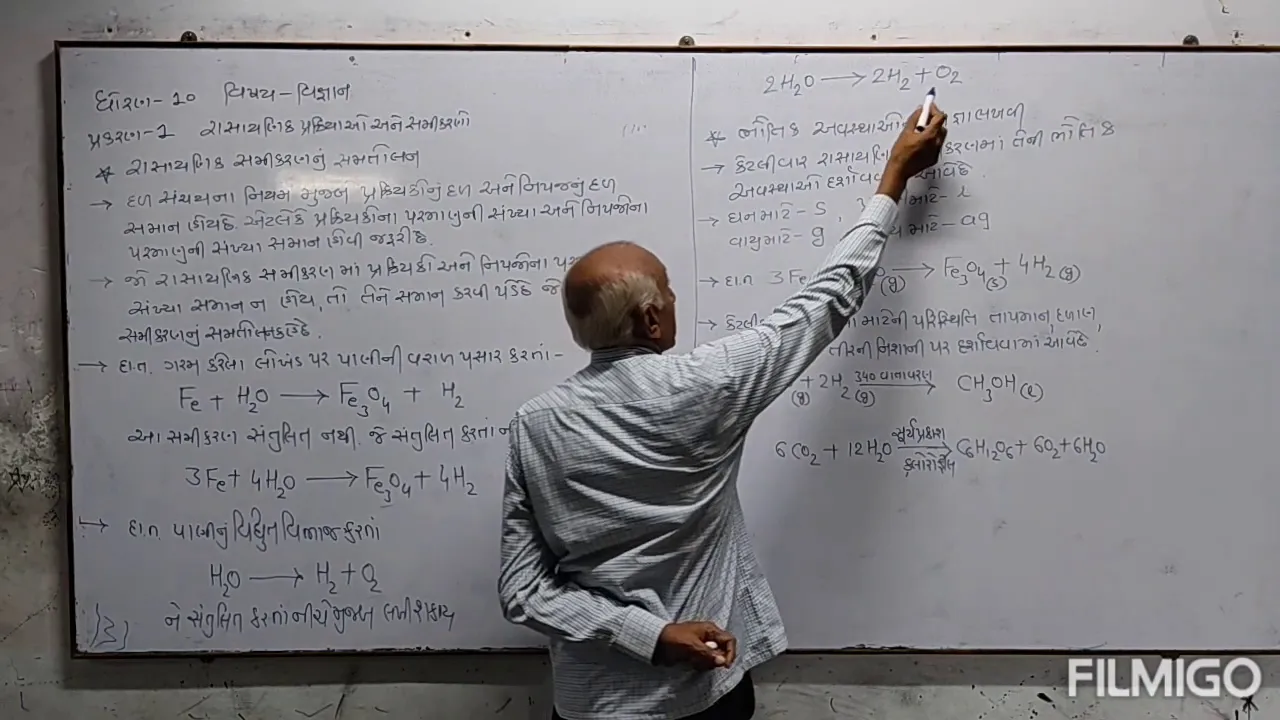 ધોરણ-10 વિષય-વિજ્ઞાન
પ્રકરણ-1 રાસાયણિક પ્રક્રિયાઓ અને સમીકરણો
* રાસાયણિક સમીકરણનું સમતોલન
→ દળ સંચયના નિયમ મુજબ પ્રક્રિયકોનું દળ અને નિપજનું દળ
સમાન હોય છે. એટલે કે પ્રક્રિયકોના પરમાણુની સંખ્યા અને નિપજોના
પરમાણુની સંખ્યા સમાન હોવી જરૂરી છે.
→ જો રાસાયણિક સમીકરણમાં પ્રક્રિયકો અને નિપજોના
સંખ્યા સમાન ન હોય, તો તેને સમાન કરવી પડે છે જે
સમીકરણનું સમતોલન કહે છે.
→ દા.ત. ગરમ કરેલા લોખંડ પર પાણીની વરાળ પસાર કરતાં -
Fe + H₂O ⟶ Fe₃O₄ + H₂
આ સમીકરણ સંતુલિત નથી. જે સંતુલિત કરતાં
3Fe + 4H₂O ⟶ Fe₃O₄ + 4H₂
→ દા.ત. પાણીનું વિદ્યુત વિભાજન કરતાં
H₂O ⟶ H₂ + O₂
ને સંતુલિત કરતાં નીચે મુજબ લખી શકાય
2H₂O ⟶ 2H₂ + O₂
* ભૌતિક અવસ્થાઓ લખવી
→ કેટલીવાર રાસાયણિ કરણમાં તેની ભૌતિક
અવસ્થાઓ દર્શાવવા આવે છે.
→ ઘન માટે - s, માટે - l
વાયુ માટે - g માટે - aq
→ દા.ત 3Fe (g) ⟶ Fe₃O₄(s) + 4H₂(g)
→ કેટલી માટેની પરિસ્થિતિ તાપમાન, દબાણ,
તીરની નિશાની પર દર્શાવવામાં આવે છે.
(g) + 2H₂(g) 340 વાતાવરણ ⟶ CH₃OH(l)
6CO₂ + 12H₂O સૂર્યપ્રકાશ ⟶ ક્લોરોફિલ C₆H₁₂O₆ + 6O₂ + 6H₂O
FILMIGO